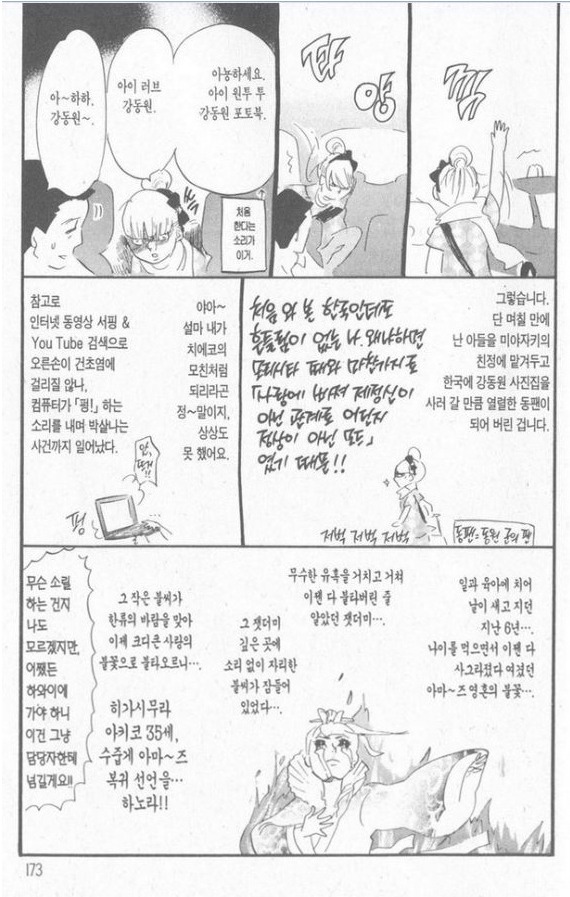 끽
앙
아농하세요.
아이 원투 투
강동원 포토북.
아이 러브
강동원.
처음
한다는
소리가
이거.
아~하하.
강동원~.
그렇습니다.
단 며칠 만에
난 아들을 미야자키의
친정에 맡겨두고
한국에 강동원 사진집을
사러 갈 만큼 열렬한 동팬이
되어 버린 겁니다.
처음 와 본 한국인데도
흔들림이 없는 나. 왜냐하면
모리시타 때와 마찬가지로
「사랑에 빠져 제정신이
아닌 관계로 어딘지
정상이 아닌 모드」
였기 때문!!
저벅 저벅 저벅
동팬=동원 군의 팬
야아~
설마 내가
치에코의
모친처럼
되리라곤
정~말이지,
상상도
못 했어요.
참고로
인터넷 동영상 서핑 &
You Tube 검색으로
오른손이 건초염에
걸리질 않나,
컴퓨터가 「펑!」 하는
소리를 내며 박살나는
사건까지 일어났다.
펑
일과 육아에 치어
날이 새고 지던
지난 6년….
나이를 먹으면서 이젠 다
사그라졌다 여겼던
아마~즈 영혼의 불꽃….
무수한 유혹을 거치고 거쳐
이젠 다 불타버린 줄
알았던 잿더미….
그 잿더미
깊은 곳에
소리 없이 자리한
불씨가 잠들어
있었다….
그 작은 불씨가
한류의 바람을 맞아
이제 코디콘 사랑의
불꽃으로 불타오르니….
히가시무라
아키코 35세,
수줍게 아마~즈
복귀 선언을…
하노라!!
무슨 소릴
하는 건지
나도
모르겠지만,
어쨌든
하와이에
가야 하니
이건 그냥
담당자한테
넘길게요!!
173